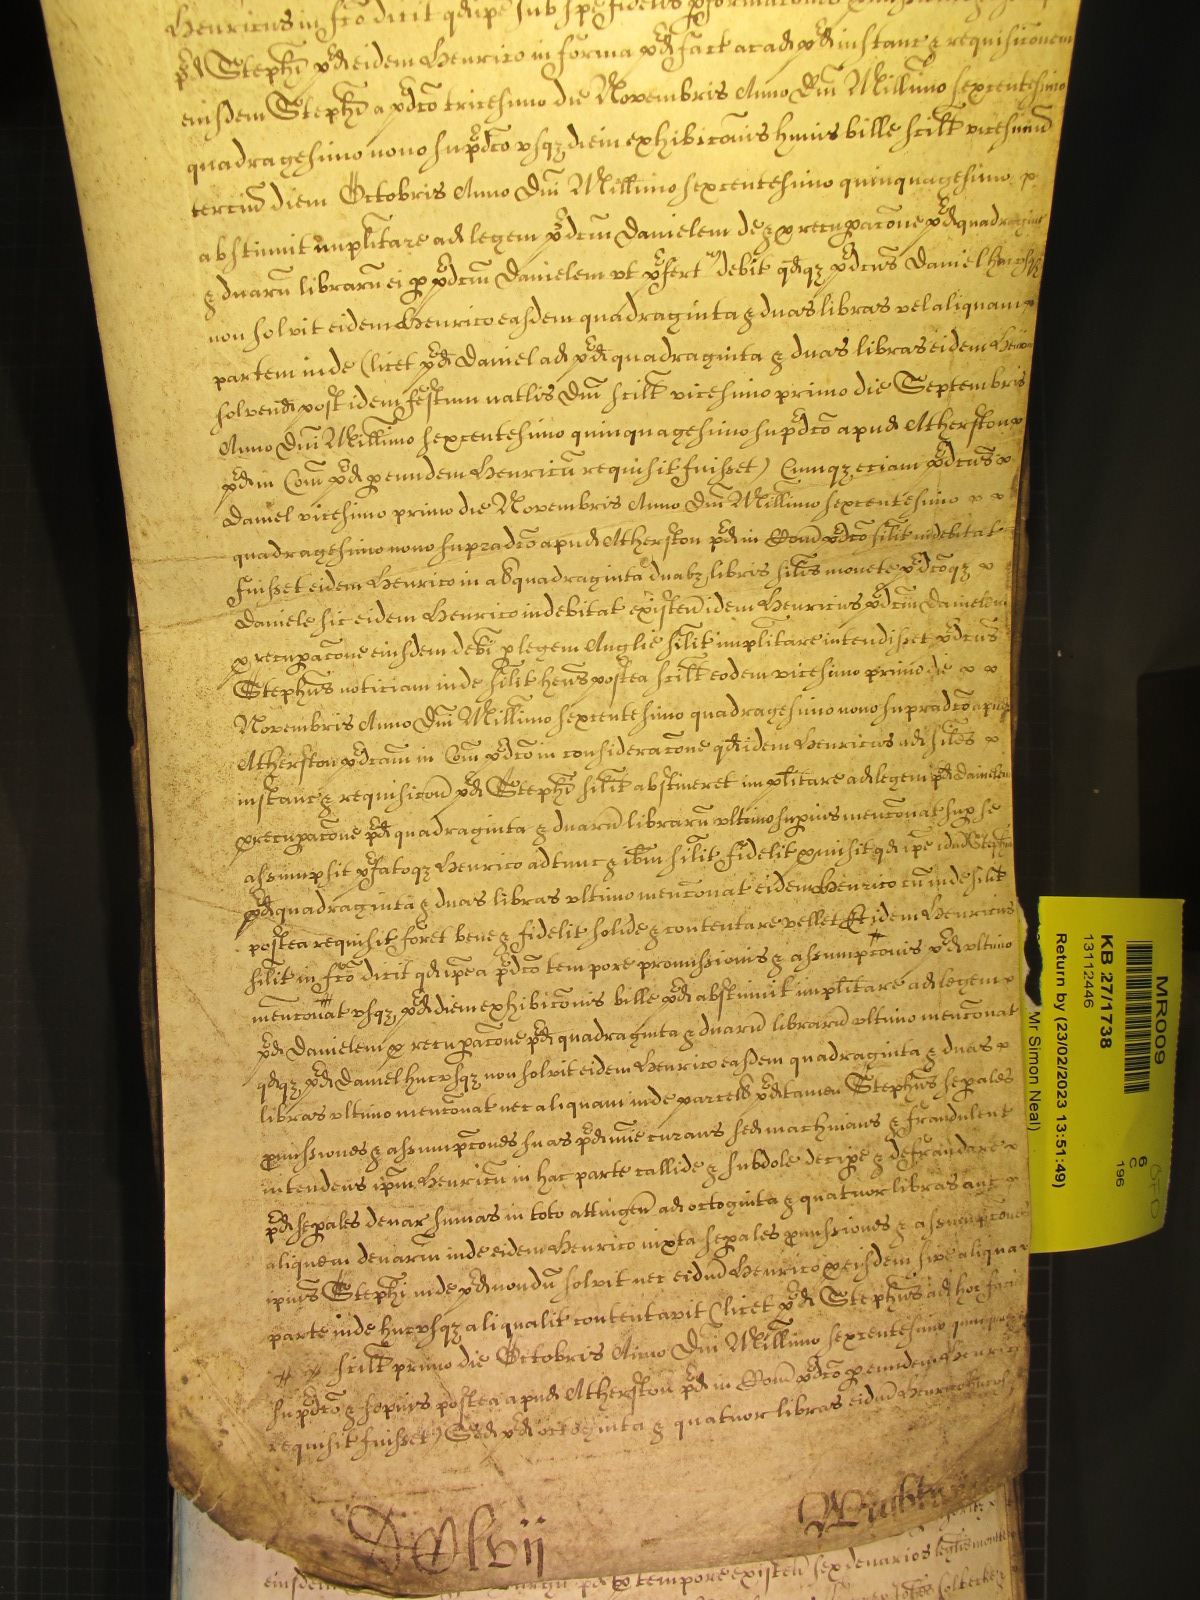 Henricus in fco dicit qd ipe sub spe fidelis pformacones
pd Stephi pd eidem Henrico in forma pd fact ac ad pd instanc & requisiconem
eiusdem Stephi a pdco tricesimo die Novembris Anno Dni Millimo sexcentesimo
quadragesimo nono supdco usqz diem exhibiconis huius bille scilt vicesimu
terciu diem Octobris Anno Dni Millimo sexcentesimo quinquagesimo
abstinuit implitare ad legem pdcm Danielem de & p recupacone pd quadragint
& duaru libraru ei p pdcm Danielem ut pfert debit qdqz pdcus Daniel hucusqz
non solvit eidem Henrico easdem quadraginta & duas libras vel aliquam
partem inde (licet pd Daniel ad pd quadraginta & duas libras eidem Henrico
solvend post idem festum natlis Dni scilt vicesimo primo die Septembris
Anno Dni Millimo sexcentesimo quinquagesimo supdco apud Atherston
pd in Com pd p eundem Henricu requisit fuisset) Cumqz eciam pdcus
Daniel vicesimo primo die Novembris Anno Dni Millimo sexcentesimo
quadragesimo nono supradco apud Atherston pd in Com pdco silit indebitat
fuisset eidem Henrico in al quadraginta duabz libris silis monete pdcoqz
Daniele sic eidem Henrico indebitat existen idem Henricus pdcm Danielem
p recupacone eiusdem debi p legem Anglie silit implitare intendisset pdcus
Stephus noticiam inde silit hens postea scilt eodem vicesimo primo die
Novembris Anno Dni Millimo sexcentesimo quadragesimo nono supradco apud
Atherston pdcam in Com pdco in consideracone qd idem Henricus ad siles
instanc & requisicon pd Stephi silit abstineret implitare ad legem pd Danielem
p recupacone pd quadraginta & duaru libraru ultimo supius menconat sup se
assumpsit pfatoqz Henrico adtunc & ibm silit fidelit pmisit qd ipe idem Stephus
pd quadraginta & duas libras ultimo menconat eidem Henrico cu inde silit
postea requisit foret bene & fidelit solvde & contentare vellet Et idem Henricus
silit in fco dicit qd ipe a pdco tempore promissionis & assumpconis pd ultimo
menconat usqz pd diem exhibiconis bille pd abstinuit implitare ad legem
pd Danielem p recupacone pd quadraginta & duaru libraru ultimo menconat
qdqz pd Daniel hucusqz non solvit eidem Henrico easdem quadraginta & duas
libras ultimo menconat nec aliquam inde parcell pd tamen Stephus sepales
pmissiones & assumpcones suas pd minie curans sed machinans & fraudulent
intendens ipm Henricu in hac parte callide & subdole decipe & defraudare
pd sepales denar sumas in toto attingen ad octoginta & quatuor libras aut
aliquem denariu inde eidem Henrico iuxta sepales pmissiones & assumpcones
ipius Stephi inde pd nondu solvit nec eidm Henrico p eisdem sive aliqua
parte inde hucusqz aliqualit contentavit (licet pd Stephus ad hoc faci
scilt primo die Octobris Anno Dni Millimo sexcentesimo quinquagesimo
supdco & sepius postea apud Atherston pd in Com pdco p eundem Henricu
requisit fuisset) Sed pd octoginta & quatuor libras eidm Henrico
eiusdem tempore existen sex denarios legalis monete
MR009
KB 27/1738
13112446
Return by (23/02/2023 13:51:49)
Mr Simon Neal)
6
C
196